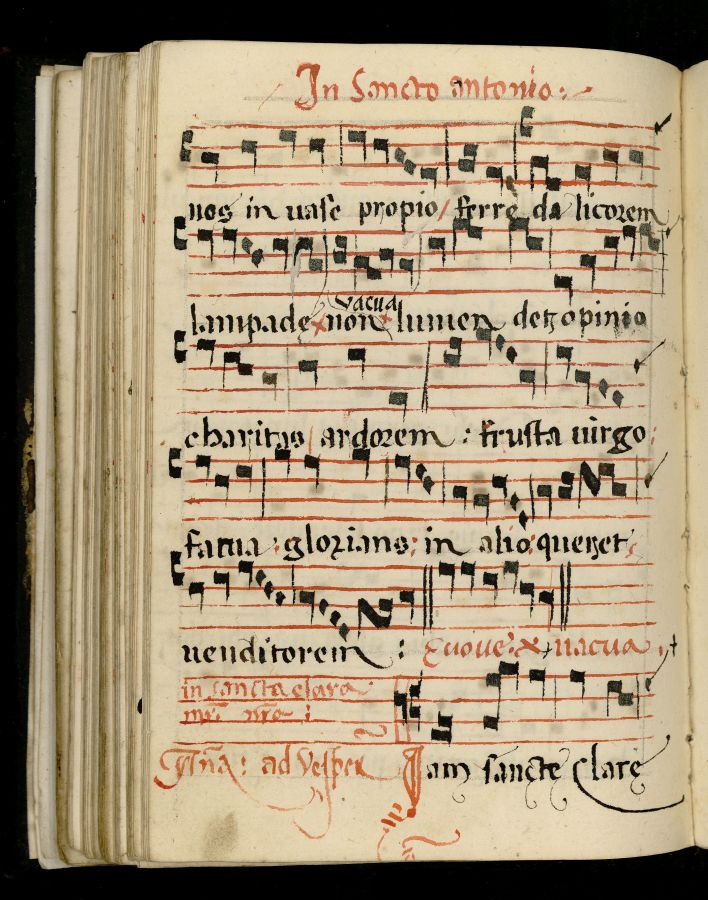 In Sancto antonio:
nos in vase propio ferre da licorem
vacua
lampade non lumen det opinio
charitas ardorem: frusta virgo
fatua: glorians: in alio queret
venditorem: Evoue: vacua
in sancta clara
ad Vesper Iam sancte clare